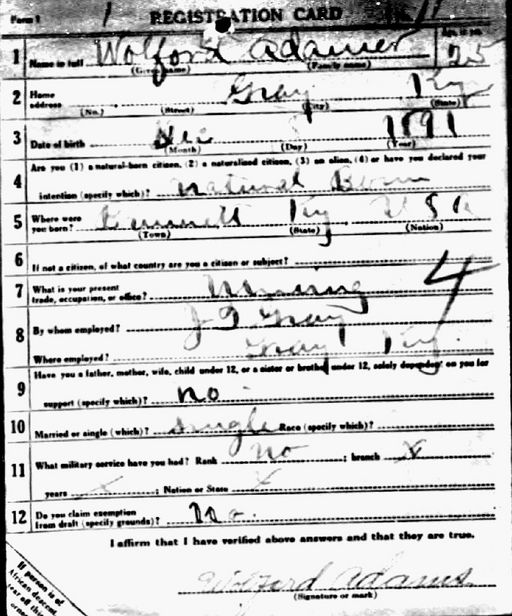 Form 1 1 REGISTRATION CARD
1 Name in full Wolford Adamer Age, in yrs. 25
(Given name) (Family name)
2 Home address Gray Ky
(No.) (Street) (City) (State)
3 Date of birth Dec 1891
(Month) (Day) (Year)
4 Are you (1) a natural-born citizen, (2) a naturalized citizen, (3) an alien, (4) or have you declared your
intention (specify which)? Natural Born
5 Where were you born? Ky U S A
(Town) (State) (Nation)
6 If not a citizen, of what country are you a citizen or subject?
7 What is your present trade, occupation, or office? Mining 4
8 By whom employed? Gray
Where employed? Gray Ky.
9 Have you a father, mother, wife, child under 12, or a sister or brother under 12, solely dependent on you for
support (specify which)? no
10 Married or single (which)? single Race (specify which)?
11 What military service have you had? Rank no ; branch x
years x ; Nation or State x
12 Do you claim exemption from draft (specify grounds)? No.
I affirm that I have verified above answers and that they are true.
Wolford Adams
(Signature or mark)
If person is of
African descent,
tear off this
corner